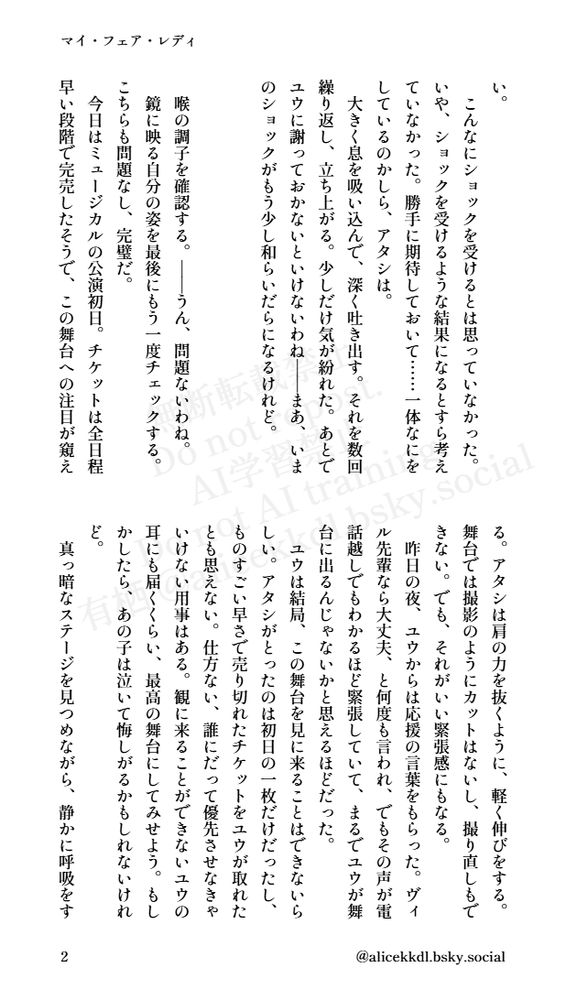 マイ・フェア・レディ
い。
　こんなにショックを受けるとは思っていなかった。
いや、ショックを受けるような結果になるとすら考え
ていなかった。勝手に期待しておいて……一体なにを
しているのかしら、アタシは。
　大きく息を吸い込んで、深く吐き出す。それを数回
繰り返し、立ち上がる。少しだけ気が紛れた。あとで
ユウに謝っておかないといけないわね――まあ、いま
のショックがもう少し和らいだらになるけれど。
　喉の調子を確認する。――うん、問題ないわね。
　鏡に映る自分の姿を最後にもう一度チェックする。
こちらも問題なし、完璧だ。
　今日はミュージカルの公演初日。チケットは全日程
早い段階で完売したそうで、この舞台への注目が窺え
る。アタシは肩の力を抜くように、軽く伸びをする。
舞台では撮影のようにカットはないし、撮り直しもで
きない。でも、それがいい緊張感にもなる。
　昨日の夜、ユウからは応援の言葉をもらった。ヴィ
ル先輩なら大丈夫、と何度も言われ、でもその声が電
話越しでもわかるほど緊張していて、まるでユウが舞
台に出るんじゃないかと思えるほどだった。
　ユウは結局、この舞台を見に来ることはできないら
しい。アタシがとったのは初日の一枚だけだったし、
ものすごい早さで売り切れたチケットをユウが取れた
とも思えない。仕方ない、誰にだって優先させなきゃ
いけない用事はある。観に来ることができないユウの
耳にも届くくらい、最高の舞台にしてみせよう。もし
かしたら、あの子は泣いて悔しがるかもしれないけれ
ど。
　真っ暗なステージを見つめながら、静かに呼吸をす
無断転載禁止
Do not repost.
AI学習禁止
Do not AI training.
有栖 @alicekkdl.bsky.social
2
@alicekkdl.bsky.social